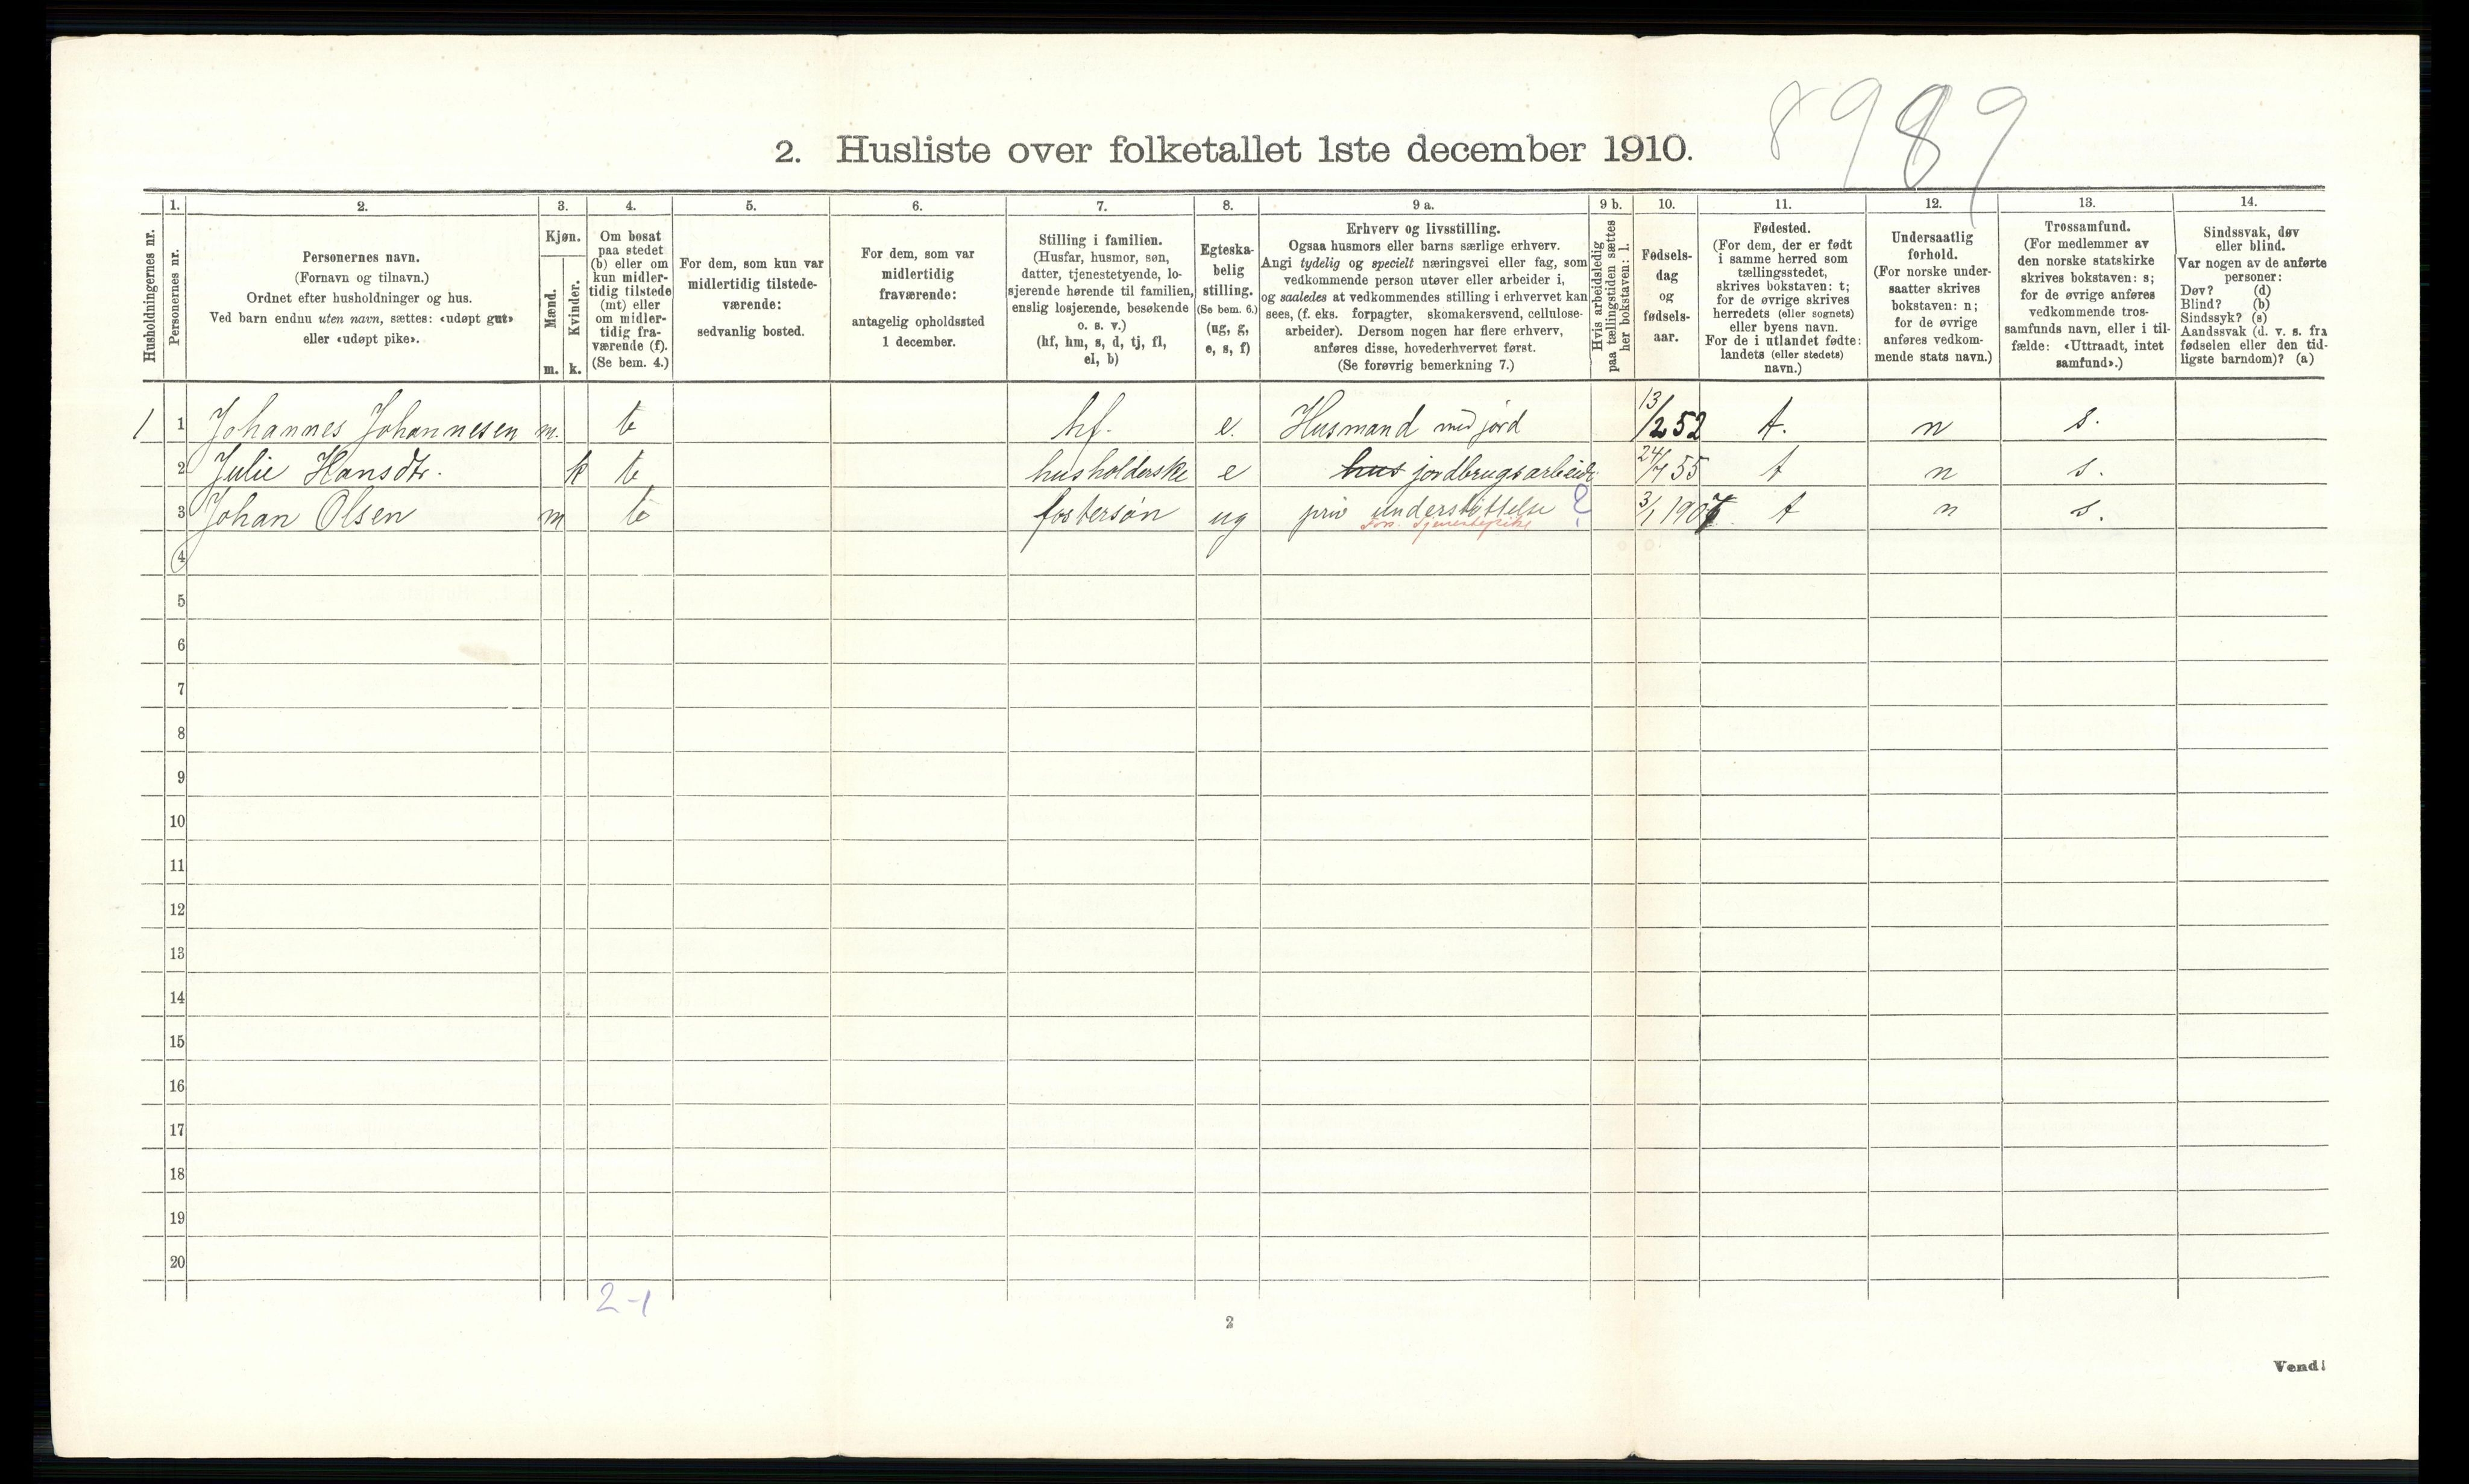 8989
2. Husliste over folketallet 1ste december 1910.
Husholdningernes nr.
1.
Personernes nr.
2.
Personernes navn.
(Fornavn og tilnavn.)
Ordnet efter husholdninger og hus.
Ved barn endnu uten navn, sættes: «udøpt gut»
eller «udøpt pike».
3.
Kjøn.
Mænd.
m.
Kvinder.
k.
4.
Om bosat
paa stedet
(b) eller om
kun midler-
tidig tilstede
(mt) eller
om midler-
tidig fra-
værende (f).
(Se bem. 4.)
5.
For dem, som kun var
midlertidig tilstede-
værende:
sedvanlig bosted.
6.
For dem, som var
midlertidig
fraværende:
antagelig opholdssted
1 december.
7.
Stilling i familien.
(Husfar, husmor, søn,
datter, tjenestetyende, lo-
sjerende hørende til familien,
enslig losjerende, besøkende
o. s. v.)
(hf, hm, s, d, tj, fl,
el, b)
8.
Egteska-
belig
stilling.
(Se bem. 6.)
(ug, g,
e, s, f)
9 a.
Erhverv og livsstilling.
Ogsaa husmors eller barns særlige erhverv.
Angi tydelig og specielt næringsvei eller fag, som
vedkommende person utøver eller arbeider i,
og saaledes at vedkommendes stilling i erhvervet kan
sees, (f. eks. forpagter, skomakersvend, cellulose-
arbeider). Dersom nogen har flere erhverv,
anføres disse, hovederhvervet først.
(Se forøvrig bemerkning 7.)
9 b.
Hvis arbeidsledig
paa tællingstiden sættes
her bokstaven: l.
10.
Fødsels-
dag
og
fødsels-
aar.
11.
Fødested.
(For dem, der er født
i samme herred som
tællingsstedet,
skrives bokstaven: t;
for de øvrige skrives
herredets (eller sognets)
eller byens navn.
For de i utlandet fødte:
landets (eller stedets)
navn.)
12.
Undersaatlig
forhold.
(For norske under-
saatter skrives
bokstaven: n;
for de øvrige
anføres vedkom-
mende stats navn.)
13.
Trossamfund.
(For medlemmer av
den norske statskirke
skrives bokstaven: s;
for de øvrige anføres
vedkommende tros-
samfunds navn, eller i til-
fælde: «Uttraadt, intet
samfund».)
14.
Sindssvak, døv
eller blind.
Var nogen av de anførte
personer:
Døv? (d)
Blind? (b)
Sindssyk? (s)
Aandssvak (d. v. s. fra
fødselen eller den tid-
ligste barndom)? (a)
1 1 Johannes Johannesen m. b hf. e. Husmand med jord 13/2 52 t. n s.
2 Julie Hansdtr. k b husholderske e hus jordbrugsarbeide 24/7 55 t n s.
3 Johan Olsen m b fostersøn ug priv understøttelse ? 3/1 1907 t n s.
4
5
6
7
8
9
10
11
12
13
14
15
16
17
18
19
20
2-1
2
Vend!